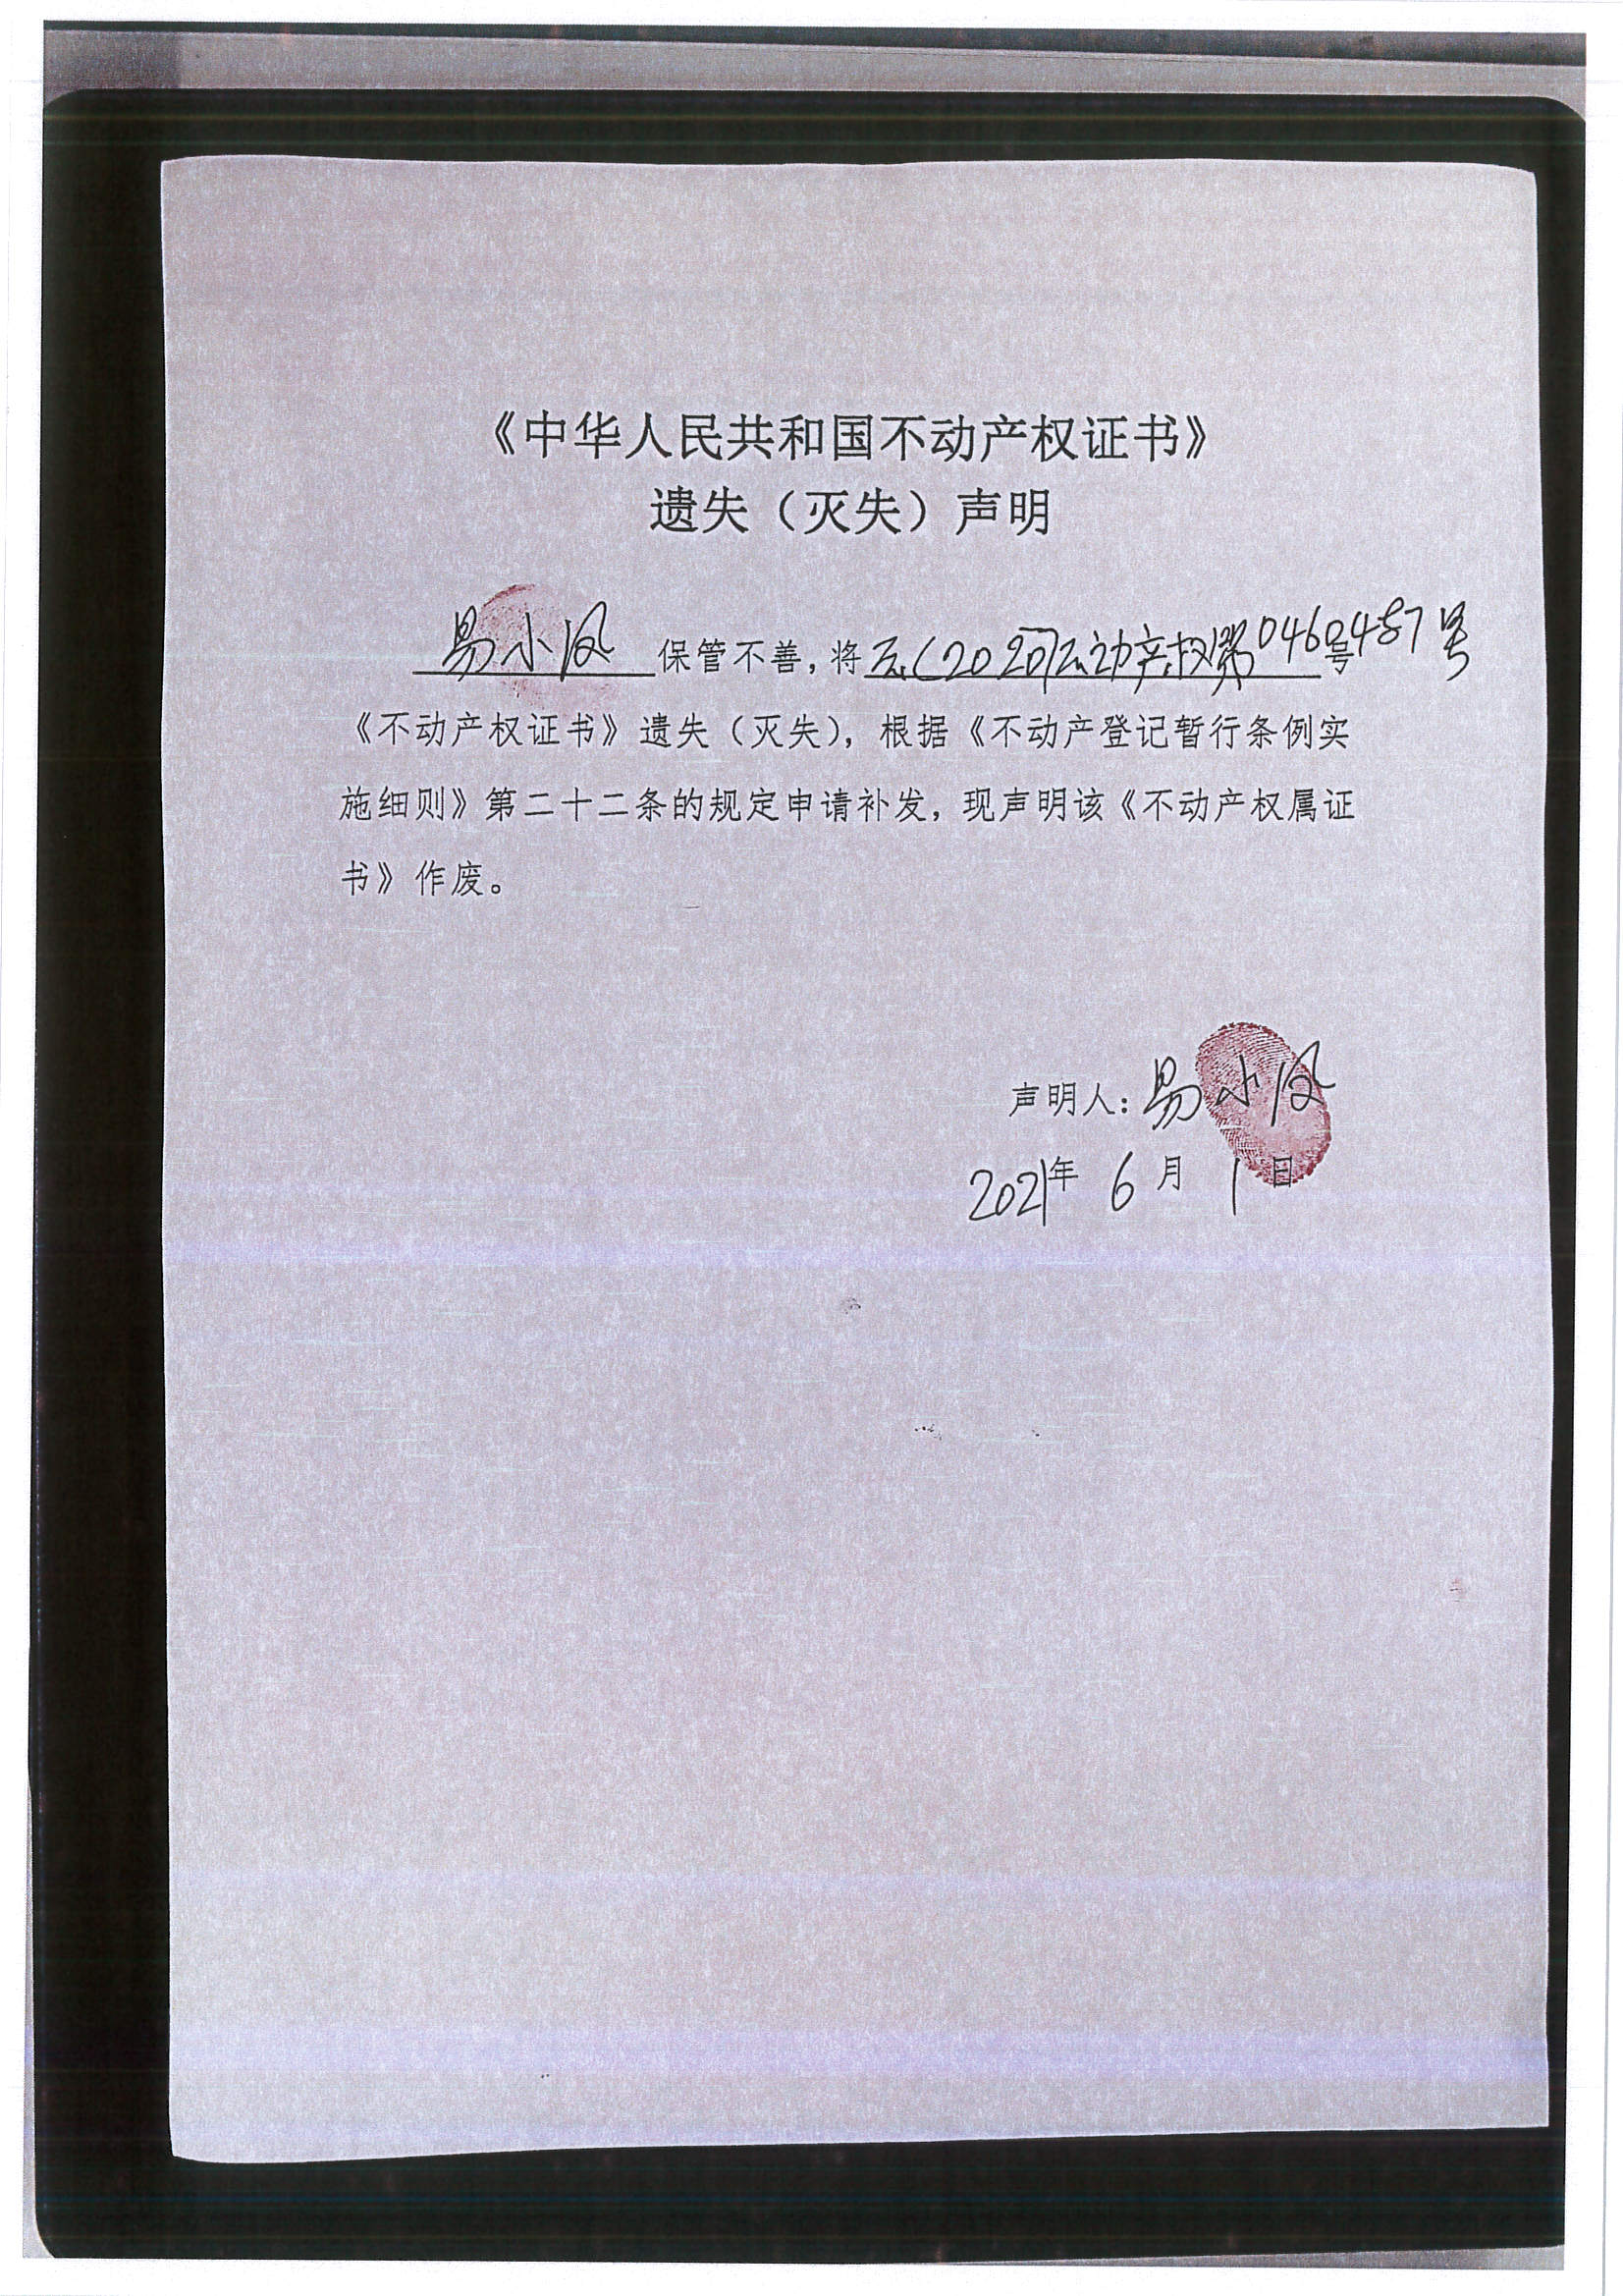 《中华人民共和国不动产权证书》
遗失（灭失）声明
易小凤 保管不善，将 (2020) 不动产权第0460487号号
《不动产权证书》遗失（灭失），根据《不动产登记暂行条例实
施细则》第二十二条的规定申请补发，现声明该《不动产权属证
书》作废。
声明人：易小凤
2021年 6 月 1 日